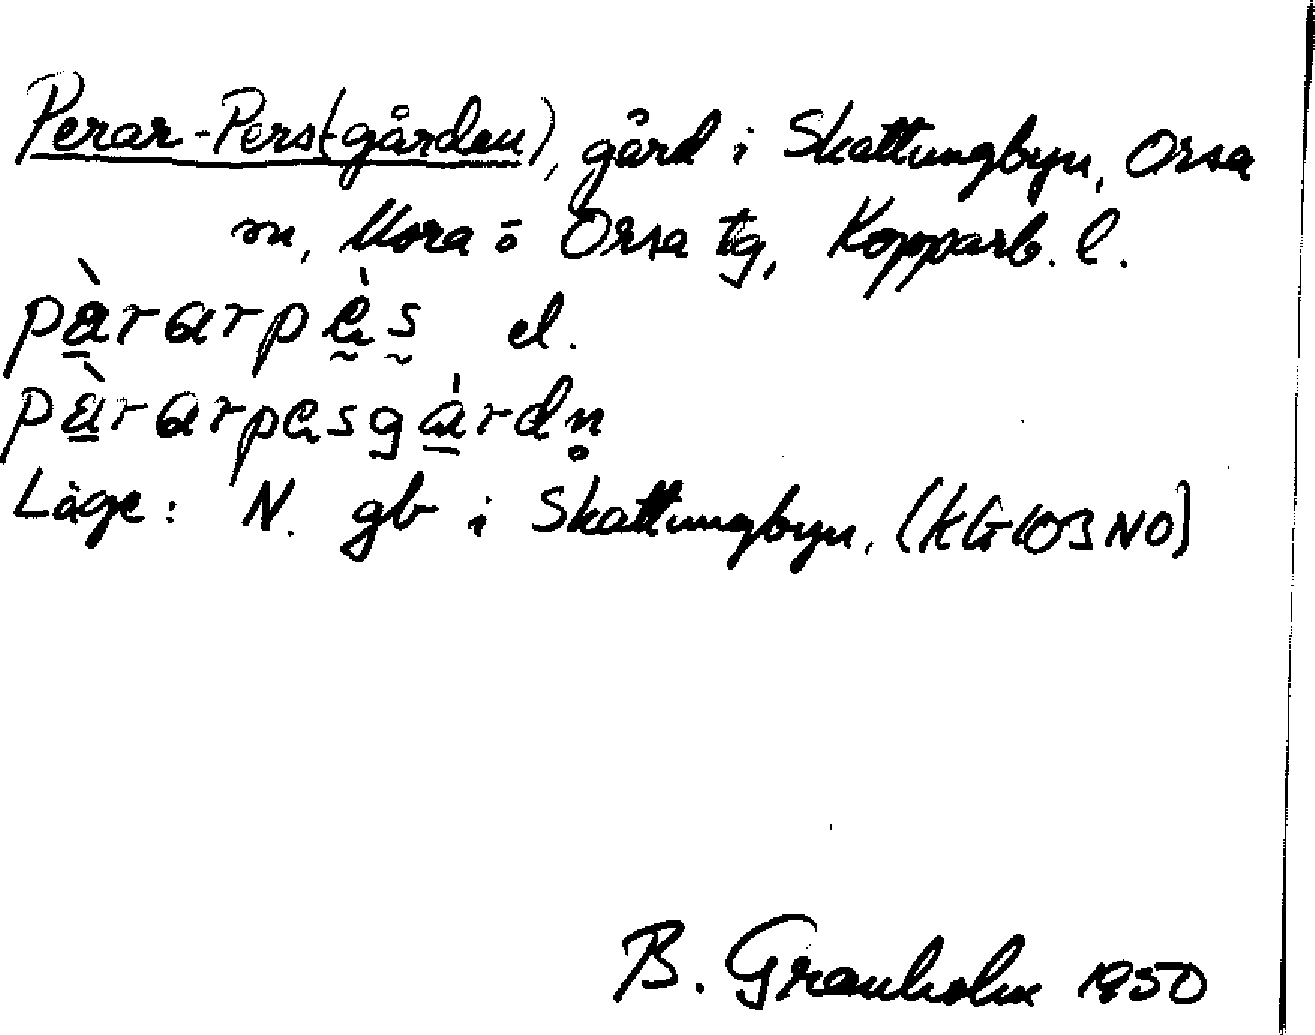 Perar-Pers(gården), gård i Skattungbyn, Orsa
sn, Mora o Orsa tg, Kopparb. l.
pàrarpès el.
pàrarpesgárdn̥
Läge: N. gb i Skattungbyn. (KG 103 NO)
B. Granholm 1950